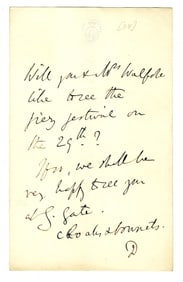 [38]
Will you & Mrs Walpole
like to see the
fiery festival on
the 29th?
If so, we shall be
very happy to see you
at G. Gate.
Cloaks & bonnets.
D